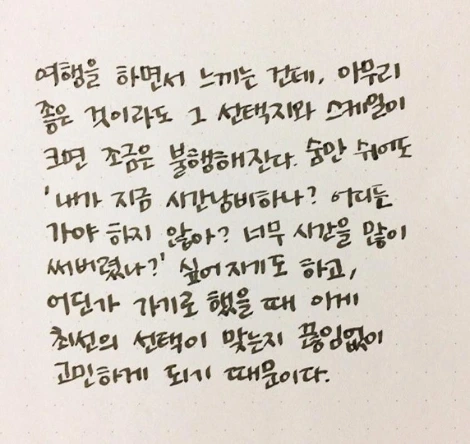 여행을 하면서 느끼는 건데, 아무리
좋은 것이라도 그 선택지와 스케일이
크면 조금은 불행해진다. 숨만 쉬어도
'내가 지금 시간낭비하나? 어디든
가야 하지 않아? 너무 시간을 많이
써버렸나?' 싶어지기도 하고,
어딘가 가기로 했을 때 이게
최선의 선택이 맞는지 끊임없이
고민하게 되기 때문이다.